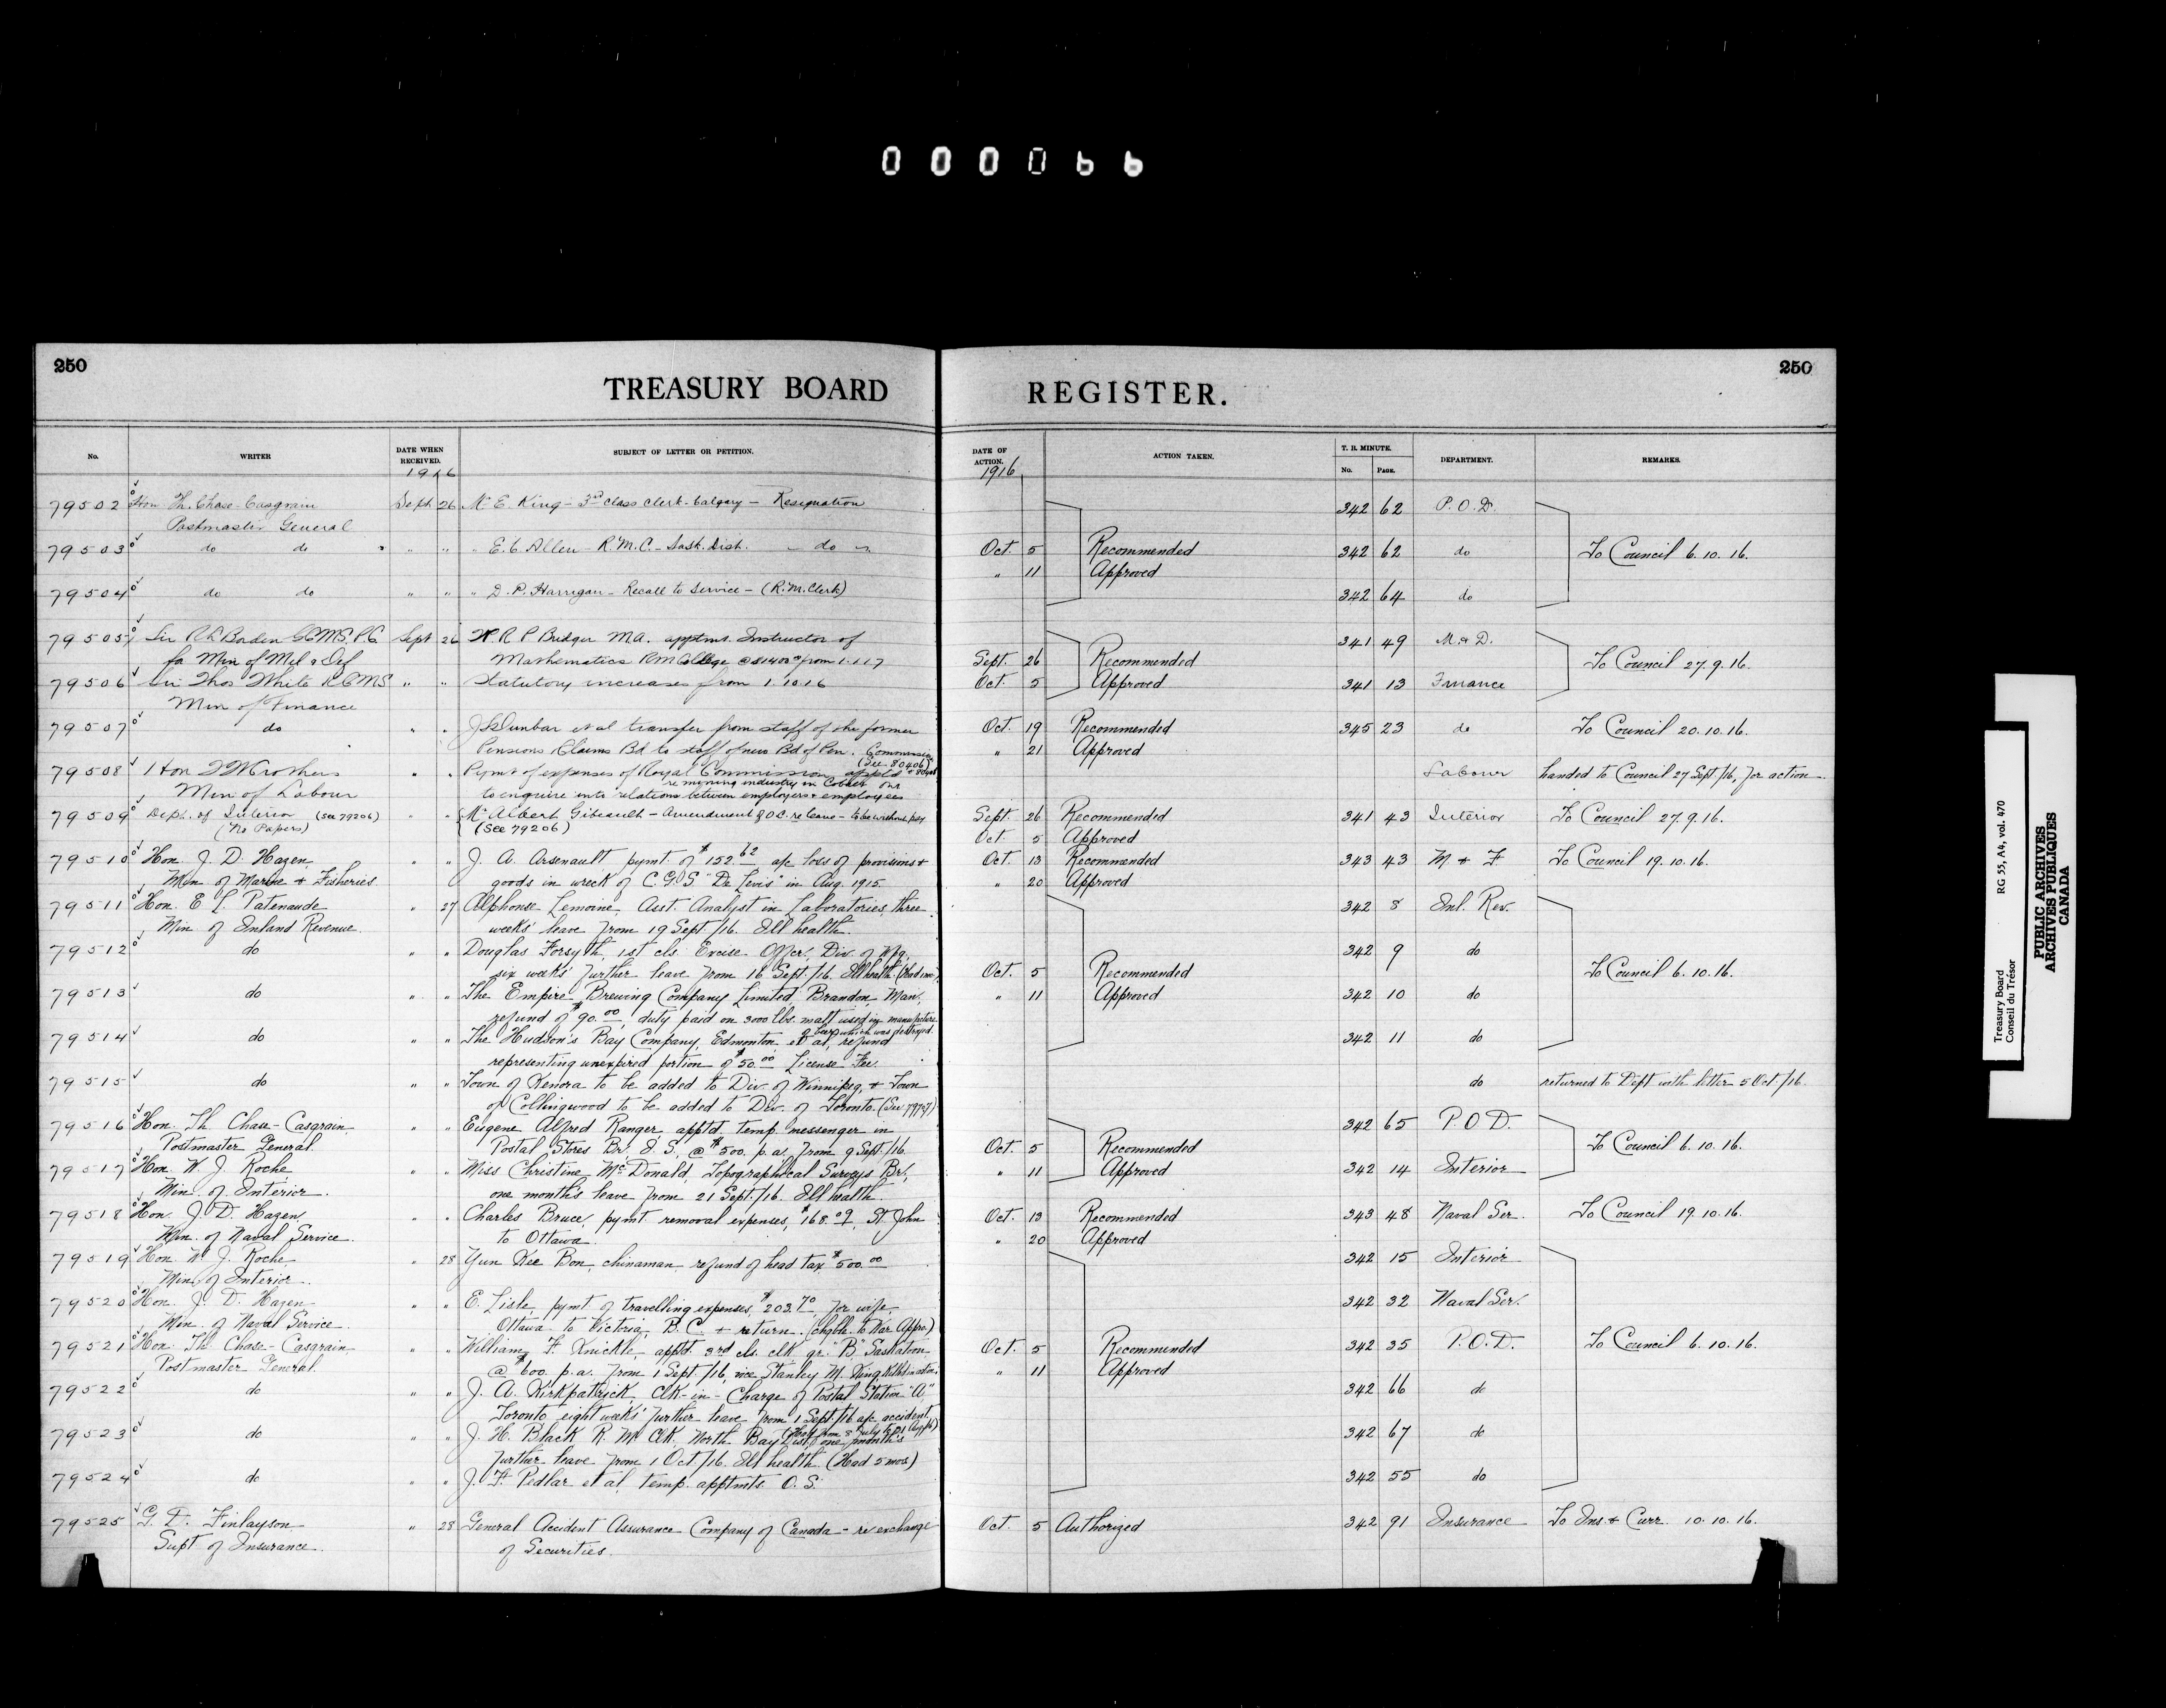 000066
250
TREASURY BOARD REGISTER.
250
No. WRITER DATE WHEN RECEIVED. SUBJECT OF LETTER OR PETITION. DATE OF ACTION. ACTION TAKEN. T. B. MINUTE. No. PAGE. DEPARTMENT. REMARKS.
1916 1916
79502 Hon Th. Chase-Casgrain Sept 26 Mr E. King - 3rd class clerk - Calgary - Resignation 342 62 P.O.D.
Postmaster General
79503 do do " " " E. C Allen - R.M.C. - Sask. Dist. - do - Oct. 5 Recommended 342 62 do To Council 6.10.16.
" 11 Approved
79504 do do " " " D. P. Harrigan - Recall to Service - (R.M. Clerk) 342 64 do
79505 Sir R L Borden GCMG. P.C. Sept 26 R P Bridger M.A. apptmt. Instructor of 341 49 M. & D.
for Min of Mil & Def Mathematics R M College @ $1400 from 1.1.17 Sept. 26 Recommended To Council 27.9.16.
79506 Sir Thos White KCMG " " Statutory increases from 1.10.16 Oct. 5 Approved 341 13 Finance
Min of Finance
79507 do " " Dunbar et al transfer from staff of the former Oct. 19 Recommended 345 23 do To Council 20.10.16.
Pensions Claims Bd to staff of new Bd of Pen. Commission " 21 Approved
(See 80406)
79508 Hon T W Crothers " " Pymt of expenses of Royal Commission appt'd Labour handed to Council 27 Sept./16, for action
re mining industry in Cobalt Ont
Min of Labour to enquire into relations between employers & employees
79509 Dept. of Interior (See 79206) " " Mr Albert Gibeault - Amendment of O.C. re leave - to be without pay Sept. 26 Recommended 341 43 Interior To Council 27.9.16.
(No Papers) (See 79206) Oct 5 Approved
79510 Hon. J. D. Hazen " " J. A. Arsenault pymt. of $152.62 a/c loss of provisions & Oct. 13 Recommended 343 43 M & F To Council 19.10.16.
Min. of Marine & Fisheries goods in wreck of C.G.S "De Levis" in Aug. 1915. " 20 Approved
79511 Hon. E L. Patenaude " 27 Alphonse Lemoine, Asst. Analyst in Laboratories, three 342 8 Inl. Rev.
Min. of Inland Revenue. weeks' leave from 19 Sept./16. Ill health.
79512 do " " Douglas Forsyth, 1st cls. Excise Officer, Div. of Wpg. 342 9 do
six weeks' further leave from 16 Sept./16. Ill health. Oct. 5 Recommended To Council 6.10.16.
79513 do " " The Empire Brewing Company Limited, Brandon, Man., " 11 Approved 342 10 do
refund of $90.00, duty paid on 3000 lbs. malt used in manufacture
of beer which was destroyed.
79514 do " " The Hudson's Bay Company, Edmonton et al, refund 342 11 do
representing unexpired portion of $50.00 License Fee.
79515 do " " Town of Kenora to be added to Div. of Winnipeg, & Town do returned to Dept with letter 5 Oct./16.
of Collingwood to be added to Div. of Toronto.
79516 Hon. Th. Chase-Casgrain " " Eugene Alfred Ranger apptd. temp. messenger in 342 65 P.O.D.
Postmaster General. Postal Stores Br., I. S., @ $500. p.a. from 9 Sept./16. Oct. 5 Recommended To Council 6.10.16.
79517 Hon. W. J. Roche " " Miss Christine McDonald, Topographical Surveys Br., " 11 Approved 342 14 Interior
Min. of Interior. one month's leave from 21 Sept./16. Ill health.
79518 Hon. J. D. Hazen " " Charles Bruce, pymt. removal expenses, $168.09, St. John Oct. 13 Recommended 343 48 Naval Ser. To Council 19.10.16.
Min. of Naval Service. to Ottawa. " 20 Approved
79519 Hon. W. J. Roche " 28 Yun Kee Bon, chinaman, refund of head tax, $500.00 342 15 Interior
Min. of Interior.
79520 Hon. J. D. Hazen " " E. Lisle, pymt. of travelling expenses, $203.70, for wife, 342 32 Naval Ser.
Min. of Naval Service. Ottawa to Victoria, B.C. & return. (chgble. to War Appro.)
79521 Hon. Th. Chase-Casgrain " " William F. Knickle, apptd. 3rd cls. clk gr. "B", Saskatoon, Oct. 5 Recommended 342 35 P.O.D. To Council 6.10.16.
Postmaster General. @ $600. p.a. from 1 Sept./16, vice Stanley M. King killed in action. " 11 Approved
79522 do " " J. A. Kirkpatrick, Clk-in-Charge of Postal Station "A" 342 66 do
Toronto, eight weeks' further leave from 1 Sept./16 a/c accident.
79523 do " " J. H. Black R. M. Clk. North Bay Dist., one month's 342 67 do
further leave from 1 Oct./16. Ill health (Had 5 mos.)
79524 do " " J. F. Pedlar et al, temp. apptmts. O. S. 342 55 do
79525 G. D. Finlayson " 28 General Accident Assurance Company of Canada - re exchange Oct. 5 Authorized 342 91 Insurance To Ins. & Curr. 10.10.16.
Supt of Insurance. of Securities.
Treasury Board RG 55, A4, vol. 470
Conseil du Trésor
PUBLIC ARCHIVES
ARCHIVES PUBLIQUES
CANADA